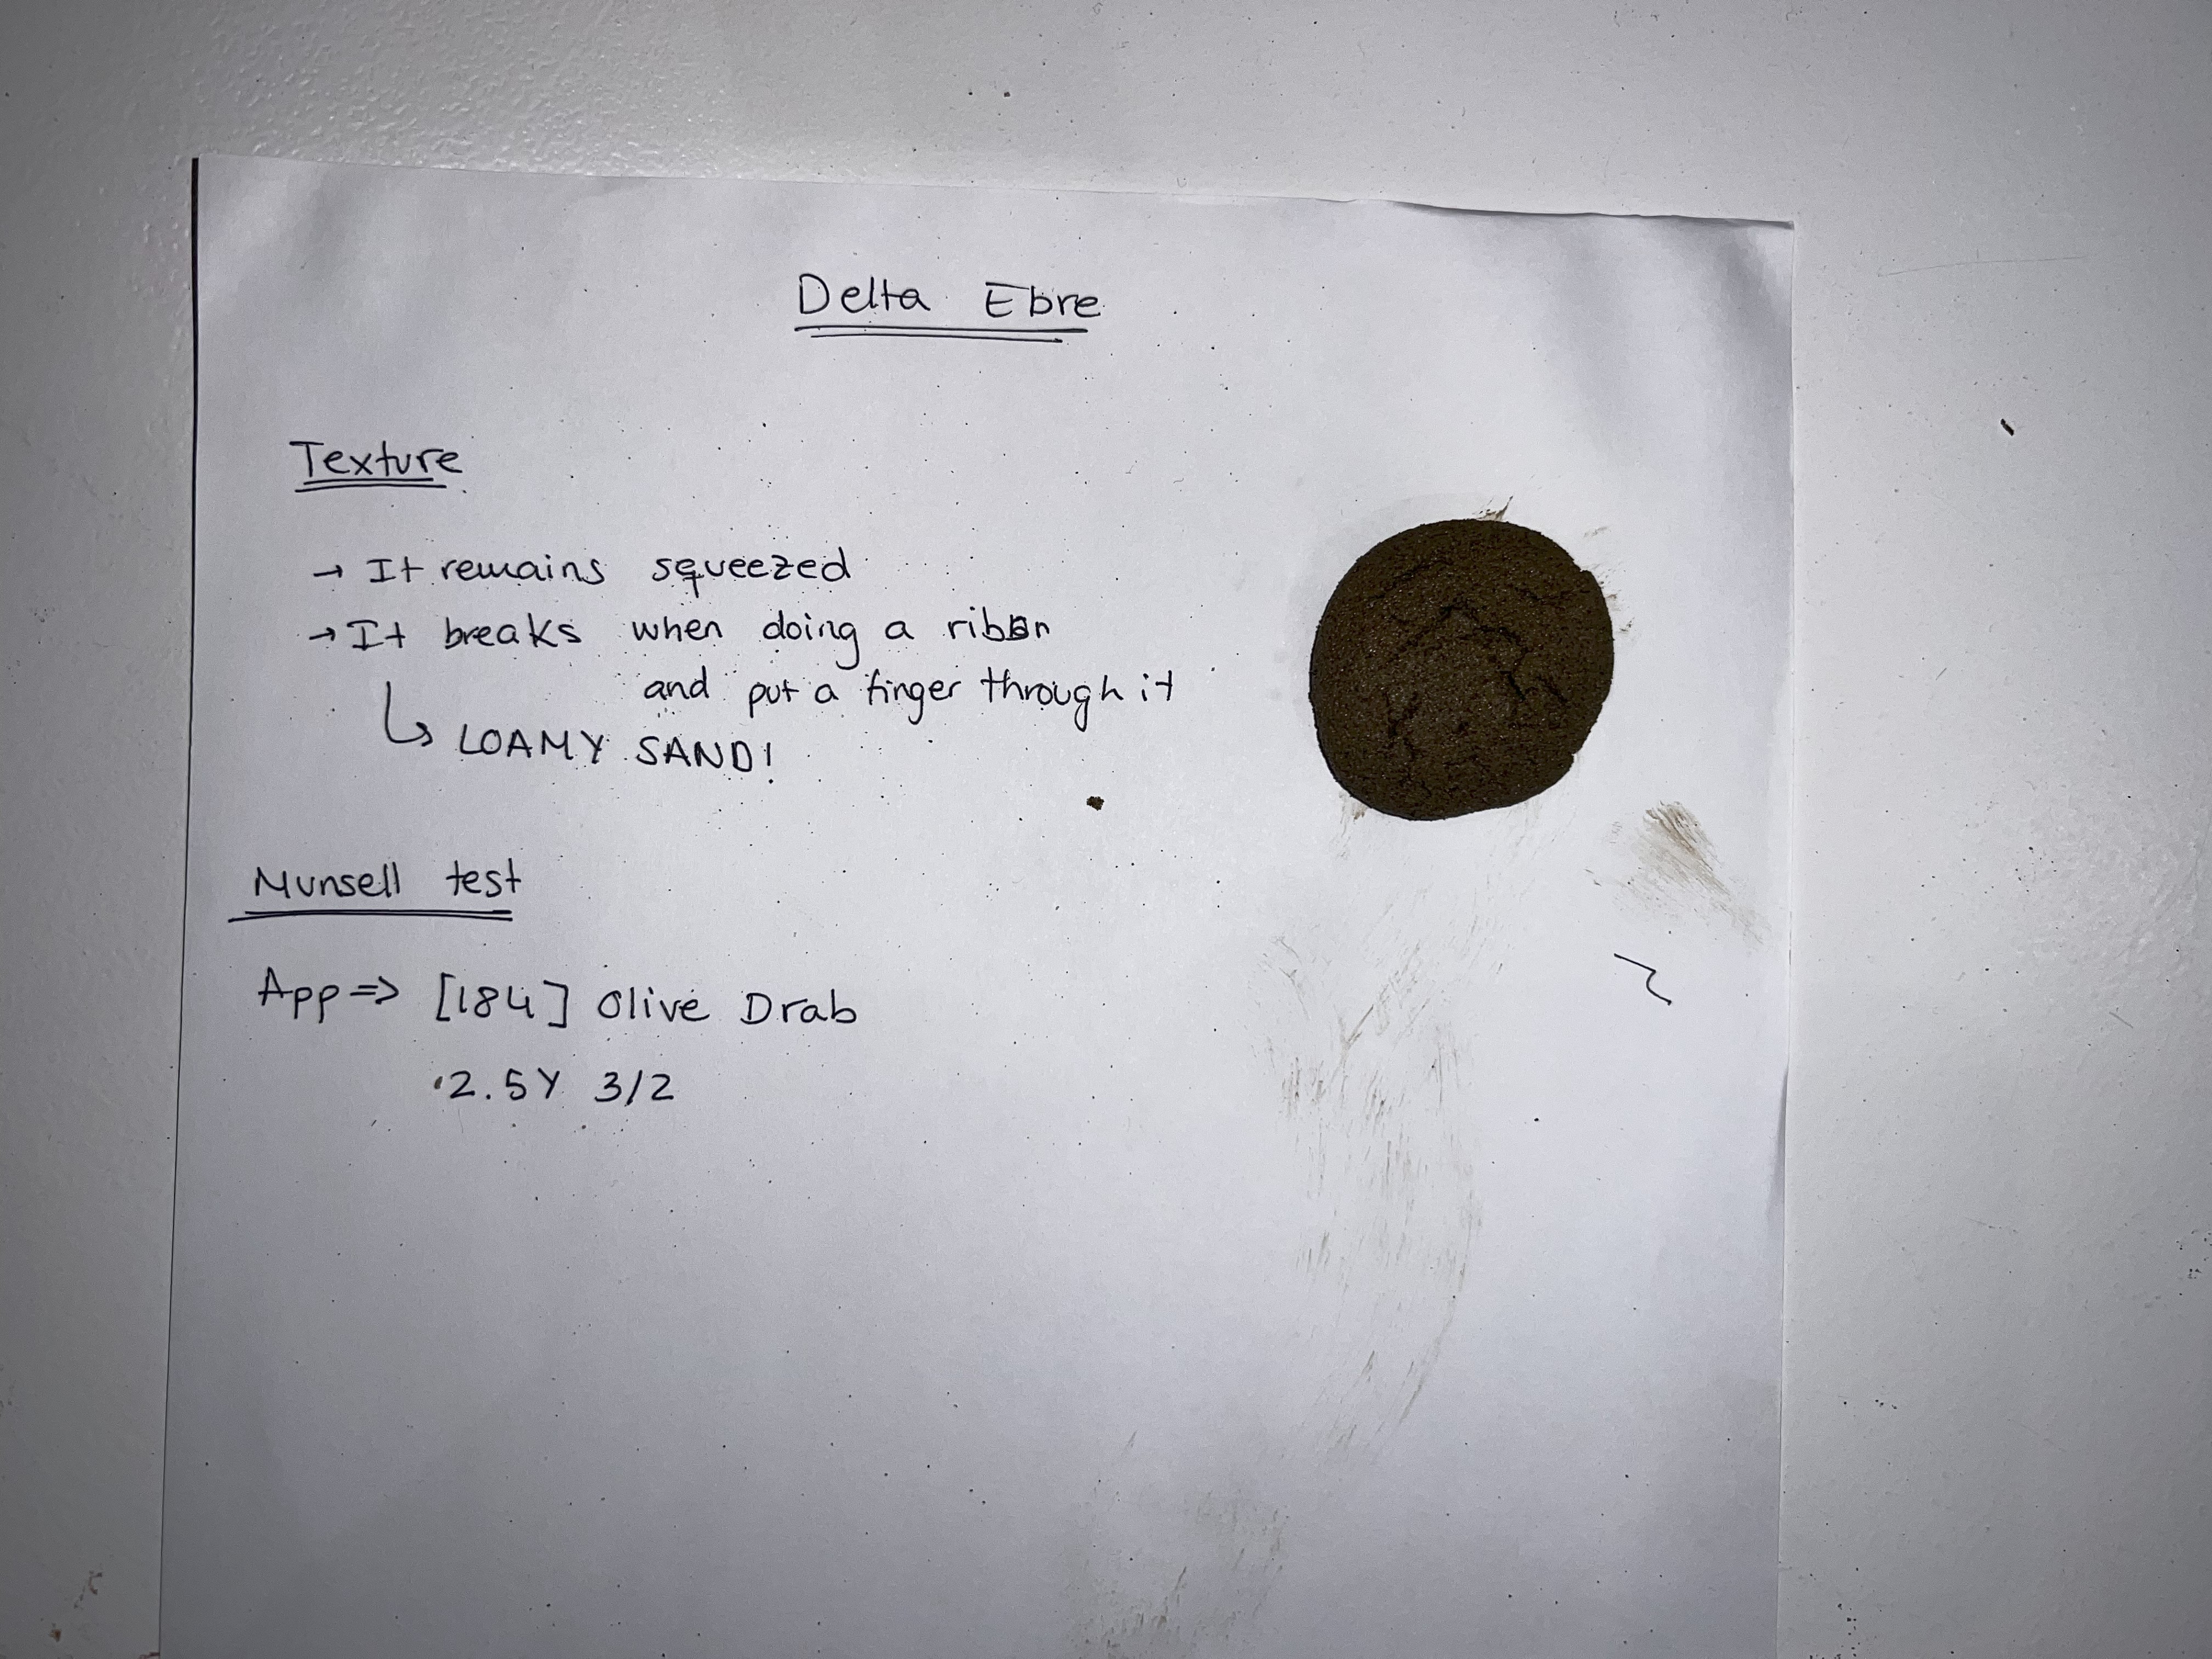 Delta Ebre
Texture
→ It remains squeezed
→ It breaks when doing a ribbon
and put a finger through it
↳ LOAMY SAND!
Munsell test
App => [184] Olive Drab
2.5Y 3/2